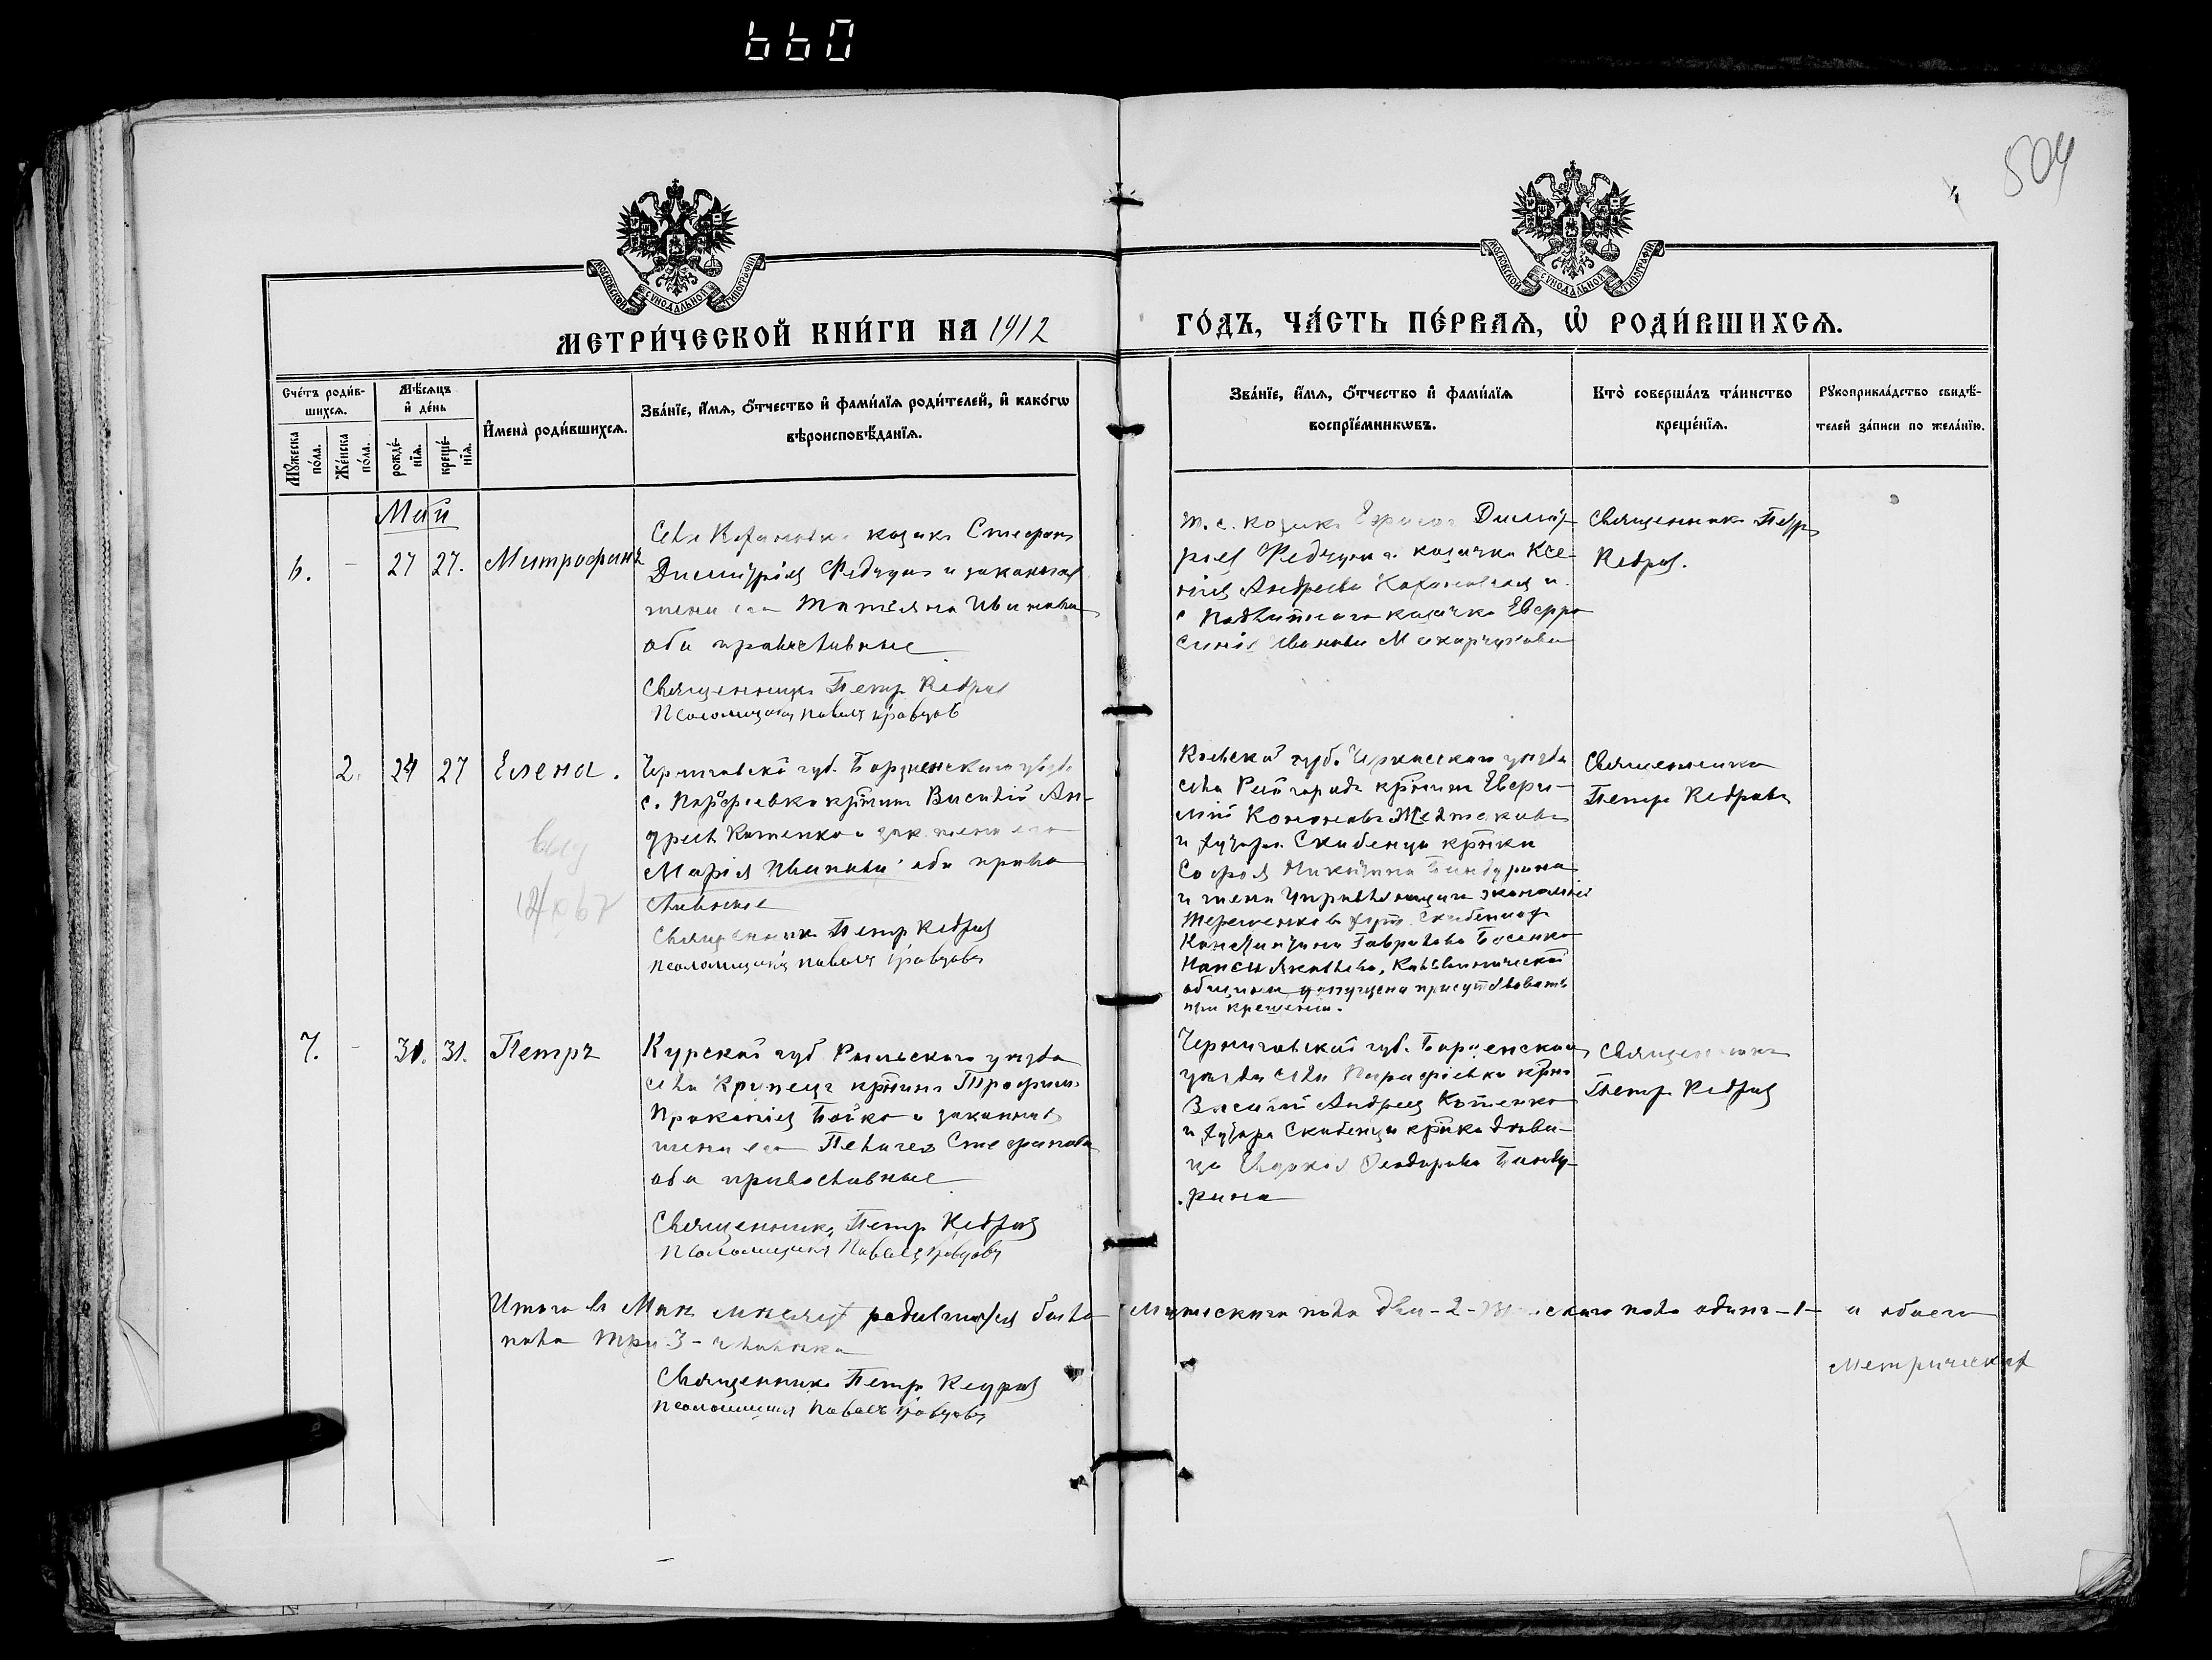 660
504
МОСКОВСКОЙ СУНОДАЛЬНОЙ ТИПОГРАФІИ
МОСКОВСКОЙ СУНОДАЛЬНОЙ ТИПОГРАФІИ
МЕТРИ́ЧЕСКОЙ КНИ́ГИ НА 1912
ГО́ДЪ, ЧА́СТЬ ПЕ́РВАѦ, Ѽ РОДИ́ВШИХСѦ.
Сче́тъ роди́в-
шихсѧ.
Мꙋ́жеска по́ла.
Же́нска по́ла.
Мѣ́сѧцъ и҆ де́нь
рожде́-
нїѧ.
креще́-
нїѧ.
И҆мена̀ роди́вшихсѧ.
Зва́нїе, и҆́мѧ, ѻ҆́тчество и҆ фами́лїѧ роди́телей, и҆ како́гѡ
вѣроисповѣ́данїѧ.
Зва́нїе, и҆́мѧ, ѻ҆́тчество и҆ фами́лїѧ
воспрїе́мникѡвъ.
Кто̀ соверша́лъ та́инство
креще́нїѧ.
Рꙋкоприкла́дство свидѣ́-
телей за́писи по жела́нїю.
Май
6. - 27 27. Митрофанъ
Села козакъ Стефанъ
Димитріевъ Федчунъ и законная
жена его Татіяна Иванова
оба православные
Священникъ Петръ Кедровъ
Псаломщикъ Павелъ Кравцовъ
т. с. козакъ Димит-
ріевъ и козачка Ксе-
нія Андреева и
с козачка Евфро
синія Иванова
Священникъ Петръ
Кедровъ.
2. 24 27 Елена.
Черниговской губ. Борзенскаго уѣзда
с. Парафіевка кр҃тинъ Василій Ан-
дреевъ Котенко и зак. жена его
Марія Иванова оба право
славные
Священникъ Петръ Кедровъ
Псаломщикъ Павелъ Кравцовъ
Кіевской губ. Черкасскаго уѣзда
села кр҃тинъ
и хутора Скибенцы кр҃тка
Софія Никитина Биндурина
и жена управляющаго экономіей
Терещенко
Константина Гаврилова Босенко
общины допущена присутствовать
при крещеніи.
Священникъ
Петръ Кедровъ
7. - 31. 31. Петръ
Курской губ. Рыльскаго уѣзда
села Крупеца кр҃тинъ Трофимъ
Прокопіевъ Бойко и законная
жена его Пелагея Стефанова
оба православные
Священникъ Петръ Кедровъ
Псаломщикъ Павелъ Кравцовъ
Черниговской губ. Борзенскаго
уѣзда села Парафіевка кр҃тинъ
Василій Андреевъ Котенко
и хутора Скибенцы кр҃тка дѣви-
ца Евдокія Феодорова Бинду-
рина
Священникъ
Петръ Кедровъ
Итого въ Маѣ мѣсяцѣ родившихся было Мужескаго пола два - 2 - Женскаго пола одинъ - 1 - и обоего
пола три 3 - человѣка
Священникъ Петръ Кедровъ
Псаломщикъ Павелъ Кравцовъ
Метрическая